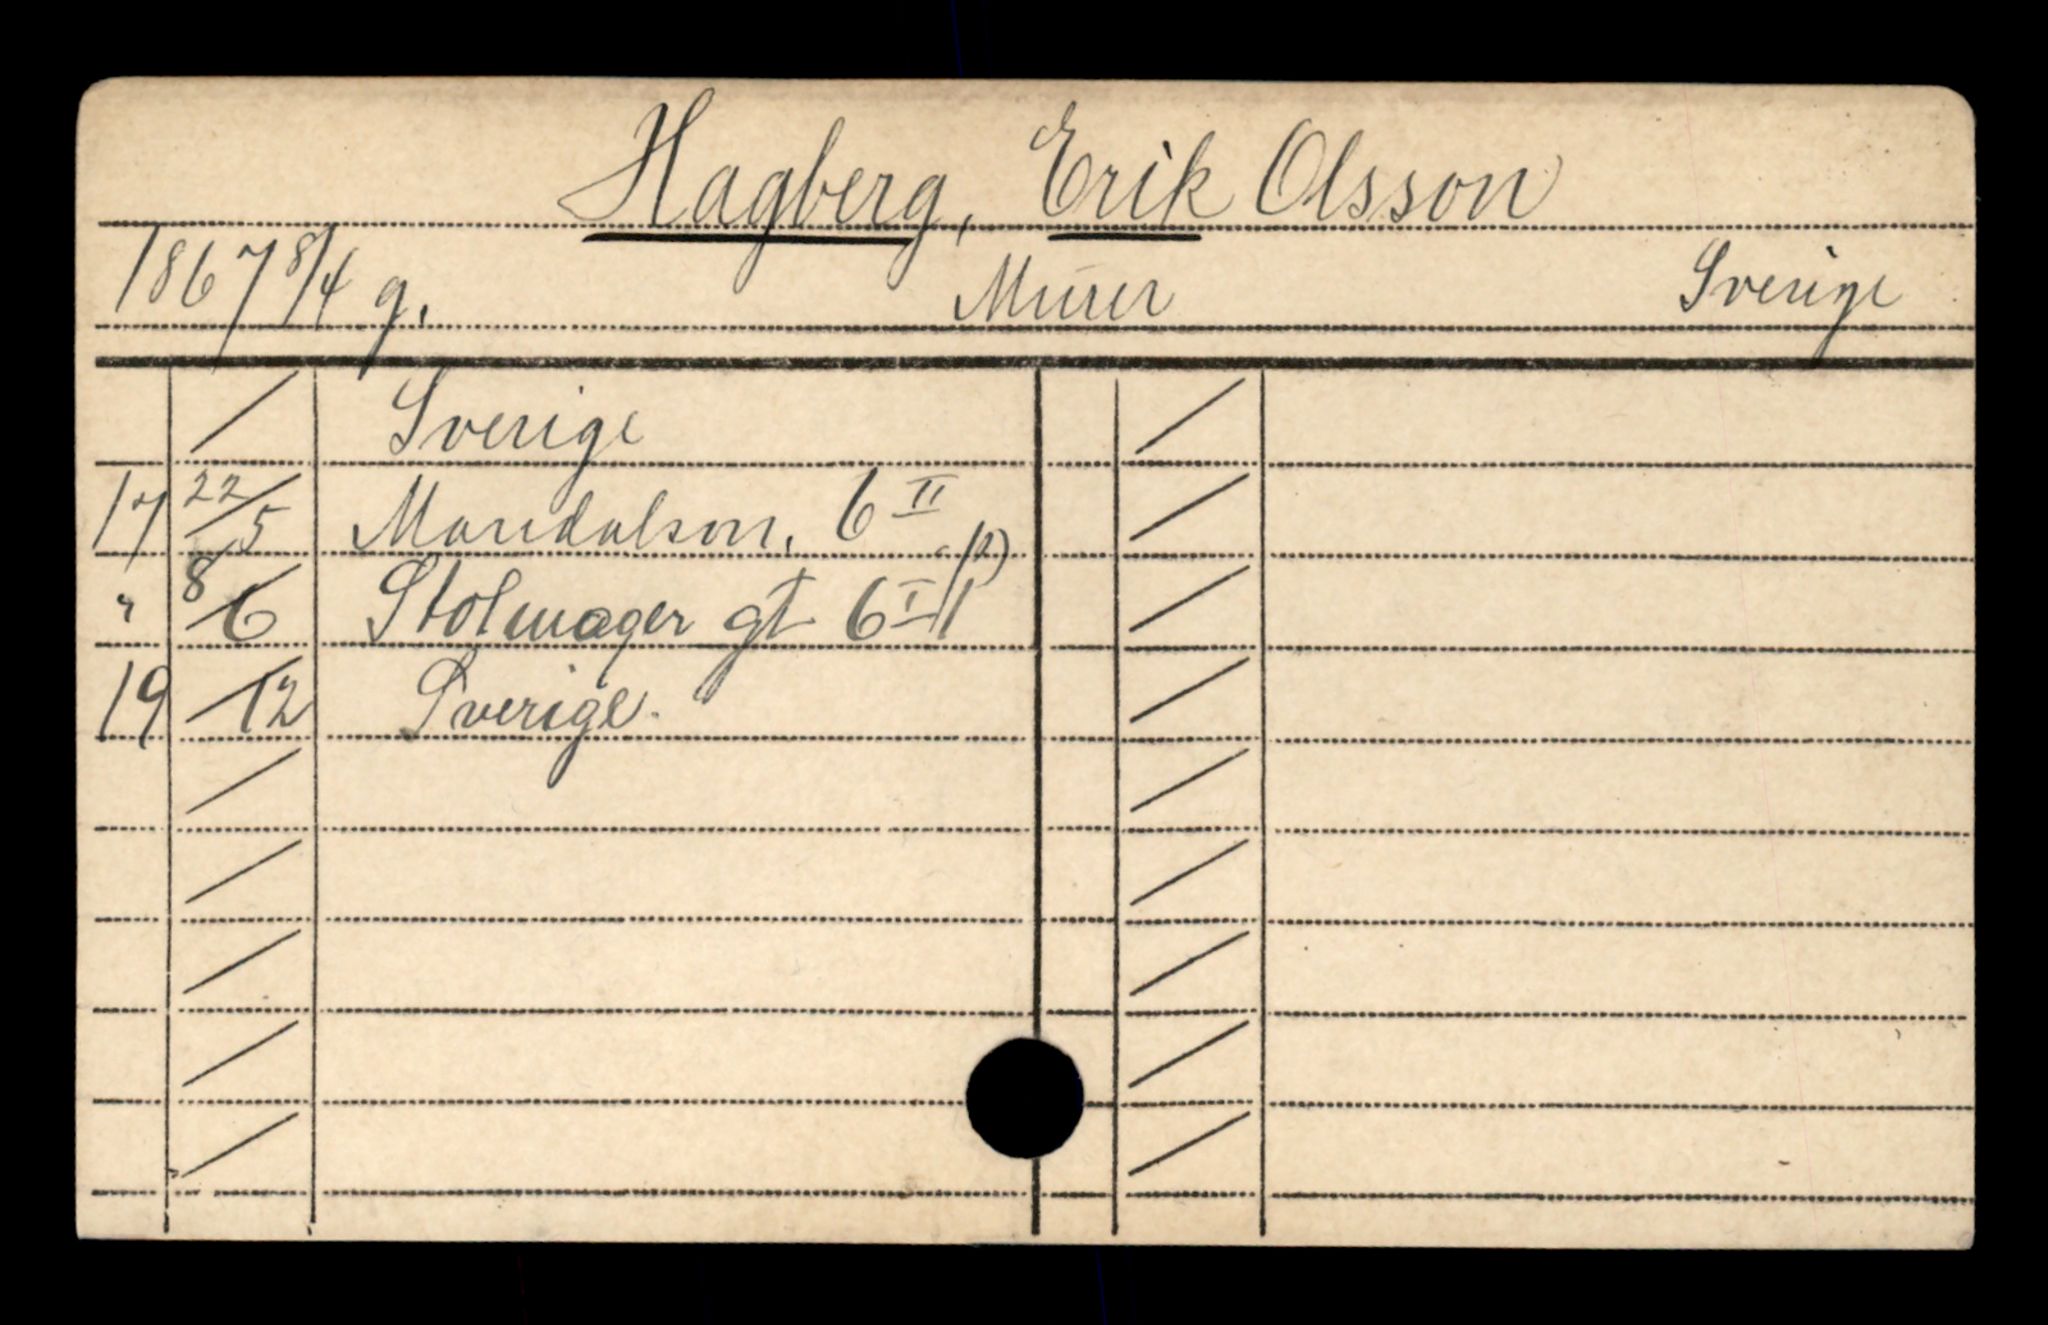 Hagberg, Erik Olsson
1867 8/4 g. Murer Sverige
/ Sverige
17 22/5 6 II
" 8/6 gt 6 I
19 /12 Sverige.